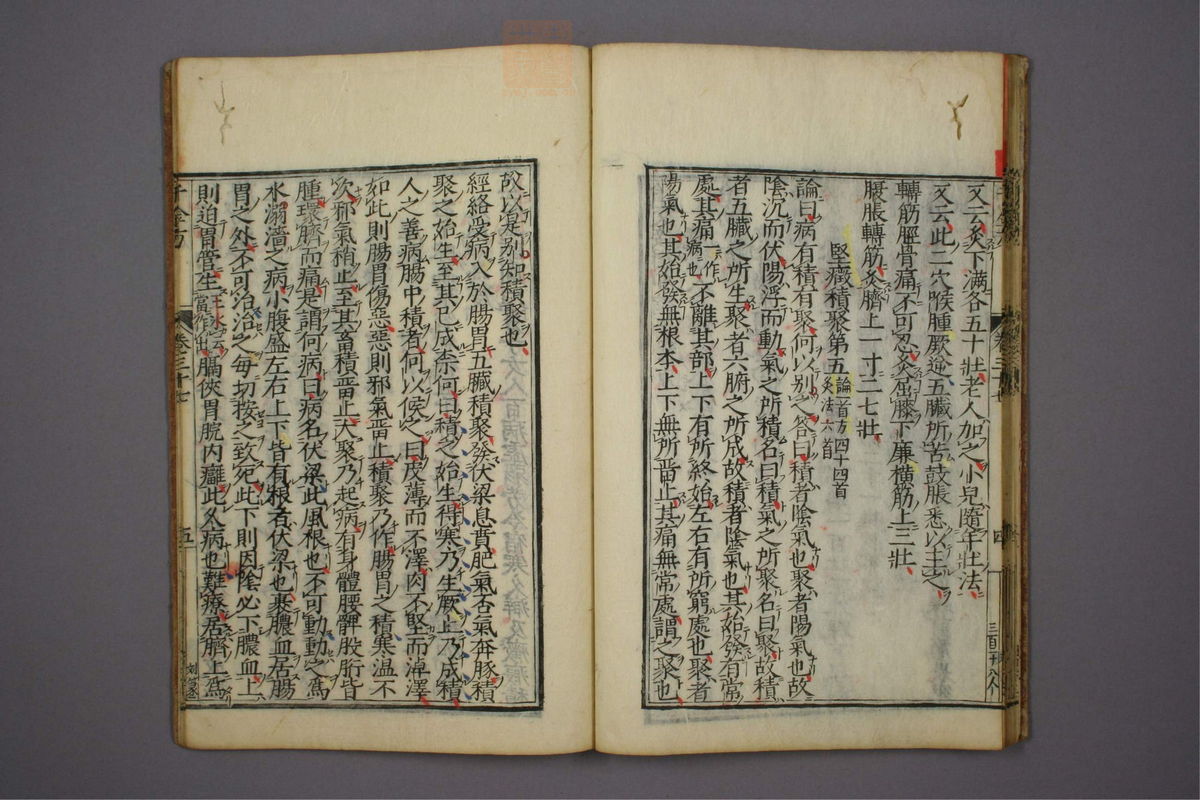 又云灸下滿各五十壯老人加之小兒隨年壯法
又云此二穴喉腫厥逆五臟所苦鼓脹悉以主之
轉筋脛骨痛不可忍灸屈膝下廉橫筋上三壯
腹脹轉筋灸臍上一寸二七壯
堅癥積聚第五 論一首方四十四首灸法六首
論曰病有積有聚何以別之答曰積者陰氣也聚者陽氣也故
陰沉而伏陽浮而動氣之所積名曰積氣之所聚名曰聚故積
者五臟之所生聚者六腑之所成故積者陰氣也其始發有常
處其痛一作病也不離其部上下有所終始左右有所窮處也聚者
陽氣也其始發無根本上下無所留止其痛無常處謂之聚也
故以是別知積聚也
經絡受病入於腸胃五臟積聚發伏梁息賁肥氣否氣奔豚積
聚之始生至其已成柰何曰積之始生得寒乃生厥上乃成積
人之善病腸中積者何以候之曰皮薄而不澤肉不堅而淖澤
如此則腸胃傷惡惡則邪氣留止積聚乃作腸胃之積寒溫不
次邪氣稍止至其畜積留止大聚乃起病有身體腰髀股胻皆
腫環臍而痛是謂何病曰病名伏梁此風根也不可動動之爲
水溺濇之病小腹盛左右上下皆有根者伏梁也裹膿血居腸
胃之外不可治治之每切按之致死此下則因陰必下膿血上
則迫胃管生王冰云當作出膈俠胃脘內癰此久病也難療居臍上爲
千金方
卷三十七
五
四